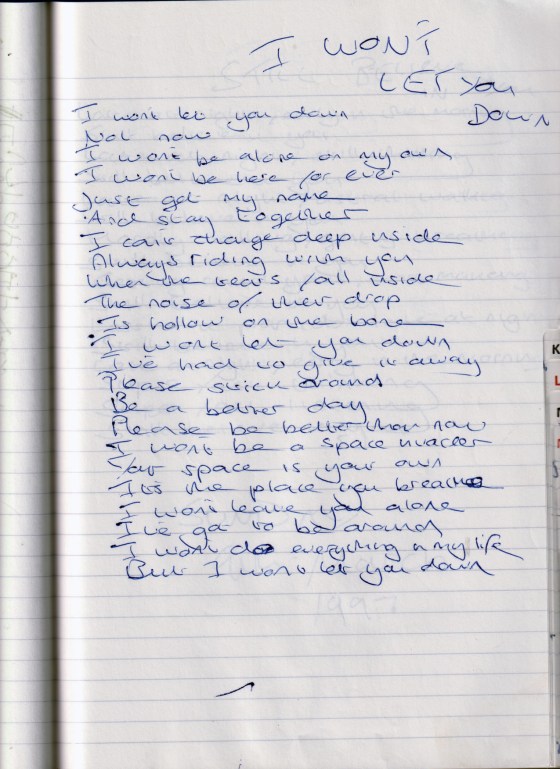 I WON'T
LET YOU
DOWN
I wont let you down
Not now
I wont be alone on my own
I wont be here for ever
Just get my name
And stay together
I cant change deep inside
Always riding with you
When the tears fall inside
The noise of their drop
Is hollow on the bone
I wont let you down
I've had to give it away
Please stick around
Be a better day
Please be better than now
I wont be a space invader
Your space is your own
Its the place you breathe
I wont leave you alone
I've got to be around
I wont do everything in my life
But I wont let you down